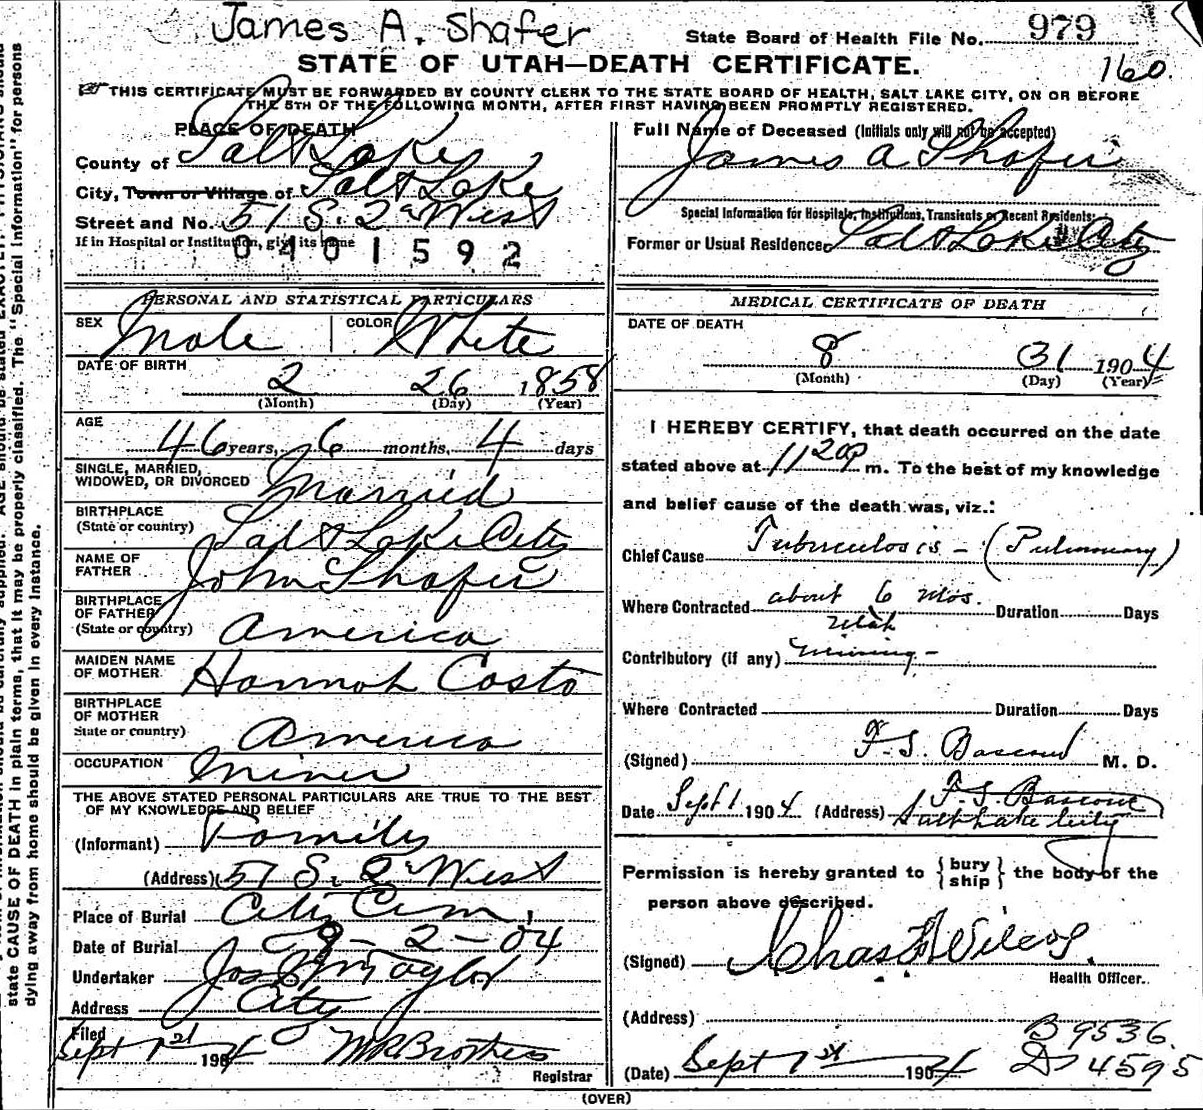 James A. Shafer
State Board of Health File No. 979
STATE OF UTAH—DEATH CERTIFICATE.
160.
THIS CERTIFICATE MUST BE FORWARDED BY COUNTY CLERK TO THE STATE BOARD OF HEALTH, SALT LAKE CITY, ON OR BEFORE
THE 5TH OF THE FOLLOWING MONTH, AFTER FIRST HAVING BEEN PROMPTLY REGISTERED.
PLACE OF DEATH
County of Salt Lake
City, Town or Village of Salt Lake
Street and No. 51 S. 2d West
If in Hospital or Institution, give its name
0401592
PERSONAL AND STATISTICAL PARTICULARS
SEX Male COLOR White
DATE OF BIRTH
2 26 1858
(Month) (Day) (Year)
AGE
46 years, 6 months, 4 days
SINGLE, MARRIED,
WIDOWED, OR DIVORCED Married
BIRTHPLACE
(State or country) Salt Lake City
NAME OF
FATHER John Shafer
BIRTHPLACE
OF FATHER
(State or country) America
MAIDEN NAME
OF MOTHER Hannah Casto
BIRTHPLACE
OF MOTHER
State or country) America
OCCUPATION Miner
THE ABOVE STATED PERSONAL PARTICULARS ARE TRUE TO THE BEST
OF MY KNOWLEDGE AND BELIEF
(Informant) Family
(Address) 51 S. 2d West
Place of Burial City Cem,
Date of Burial 9-2-04
Undertaker Jos Wm Taylor
Address City
Filed
Sept 1st 1904 Brothers
Registrar
Full Name of Deceased (Initials only will not be accepted)
James A Shafer
Special Information for Hospitals, Institutions, Transients or Recent Residents:
Former or Usual Residence Salt Lake City
MEDICAL CERTIFICATE OF DEATH
DATE OF DEATH
8 31 1904
(Month) (Day) (Year)
I HEREBY CERTIFY, that death occurred on the date
stated above at 11 20 p m. To the best of my knowledge
and belief cause of the death was, viz.:
Chief Cause Tuberculosis - (Pulmonary)
Where Contracted about 6 mos. Duration Days
Utah
Contributory (if any) mining -
Where Contracted Duration Days
(Signed) F. S. Bascom M. D.
Date Sept 1 1904 (Address) F. S. Bascom
Salt Lake City
Permission is hereby granted to {bury
ship} the body of the
person above described.
(Signed) Chas F Wilcox
Health Officer.
(Address)
B 9536
D 4595
(Date) Sept 1st 1904
(OVER)
state CAUSE OF DEATH in plain terms, that it may be properly classified. The "Special Information" for persons
dying away from home should be given in every instance.